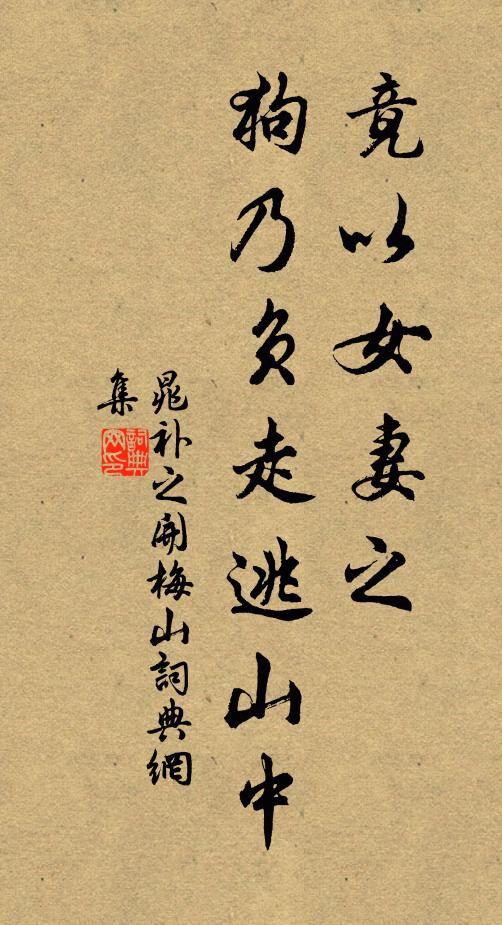 竟以女妻之
狗乃負走逃山中
晁补之開梅山詞典網
集
詞典
网印